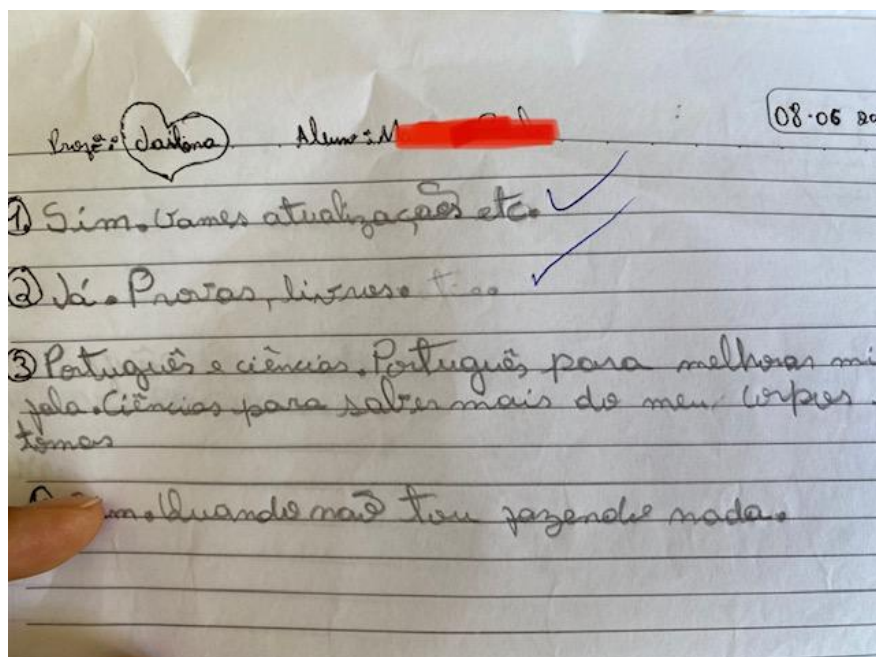 Profª: Jailina Aluno: M 08.06 20
① Sim. Games atualizações etc.
② Já. Provas, livros.
③ Português e ciências. Português para melhorar mi
fala. Ciências para saber mais do meu corpos
tomas
m. Quando não tou fazendo nada.